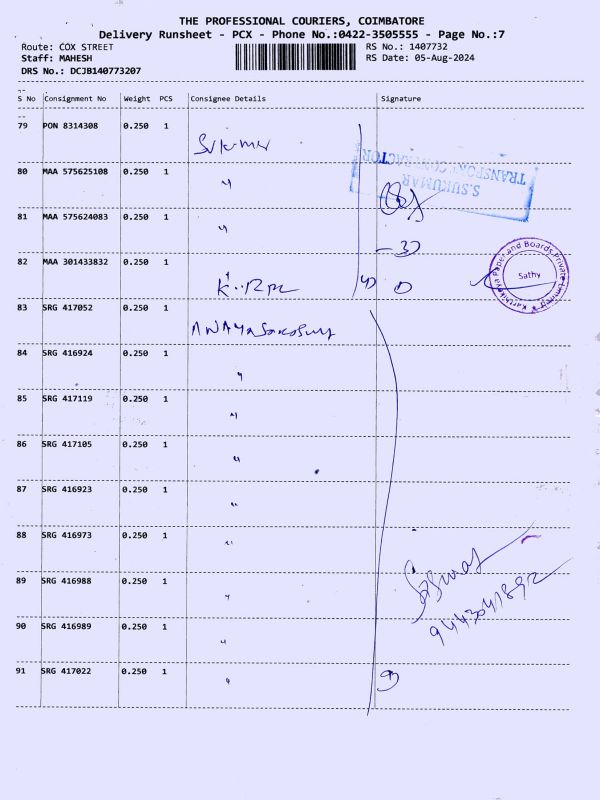 THE PROFESSIONAL COURIERS, COIMBATORE
Delivery Runsheet - PCX - Phone No.:0422-3505555 - Page No.:7
Route: COX STREET
RS No.: 1407732
Staff: MAHESH
RS Date: 05-Aug-2024
DRS No.: DCJB140773207
S No Consignment No Weight PCS Consignee Details Signature
79 PON 8314308 0.250 1
Sukumar
80 MAA 575625108 0.250 1 "
S.SUKUMAR
TRANSPORT CONTRACTOR
81 MAA 575624083 0.250 1 "
- 3)
82 MAA 301433832 0.250 1
Karthikeya Paper and Boards Private Limited
Sathy
83 SRG 417052 0.250 1
84 SRG 416924 0.250 1 "
85 SRG 417119 0.250 1 "
86 SRG 417105 0.250 1 "
87 SRG 416923 0.250 1 "
88 SRG 416973 0.250 1 "
89 SRG 416988 0.250 1 "
9443041892
90 SRG 416989 0.250 1 "
91 SRG 417022 0.250 1 "
9)